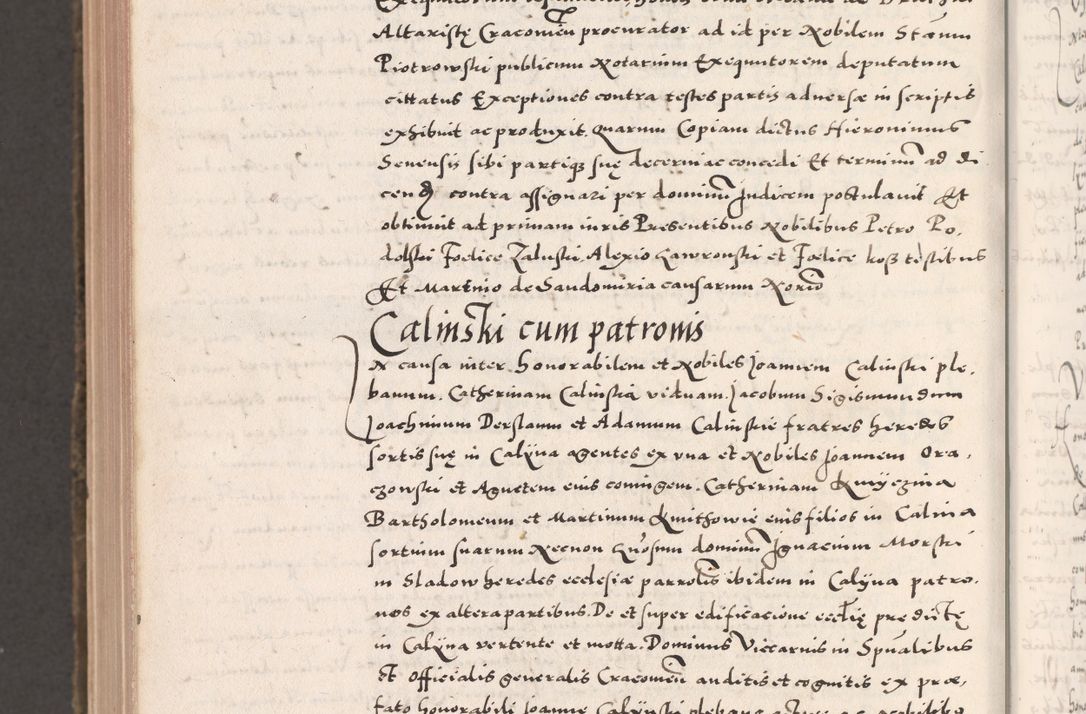 Altaristę Cracovien procurator ad id per Nobilem Stanm
Piotrowski publicum Notarium Exequutorem deputatum
cittatus Exceptiones contra testes partis adversæ in scriptis
exhibuit ac produxit. Quarum Copiam dictus Hieronimus
Senensis sibi partiq3 suę decerni ac concedi Et terminū ad di
cend contra assignari per dominū Judicem postulavit Et
obtinuit ad primam iuris Presentibus Nobilibus Petro Po,
dolski Foelice Zaluski, Alexio Lawrowski et Foelice koß testibus
Et Martino de Sandomiria causarum Norio
Calinski cum patronis
IN causa inter Honorabilem et Nobiles Joannem Calinski ple,
banum. Catherinam Calinska viduam. Jacobum Sigismundum
Joachimum Derslaum et Adamum Calinskie fratres heredes
sortis suę in Calÿna agentes ex una et Nobiles Joannem Ora,
czowski et Agnetem eius coniugem. Catherinam Kmÿczina
Bartholomeum et Martinum Kmithowie eius filios in Calina
sortium suarum Necnon dominū Ignacium Morski
in Sladow heredes ecclesiæ parrolis ibidem in Calÿna patro,
nos ex altera partibus. De et super edificacione ecclię predictę
in Calÿna vertente et motta. Dominus Viccarius in Spualibus
Et Officialis generalis Cracovien auditis et cognitis ex præ,
fato Honorabili Joanne Calÿnski plebano